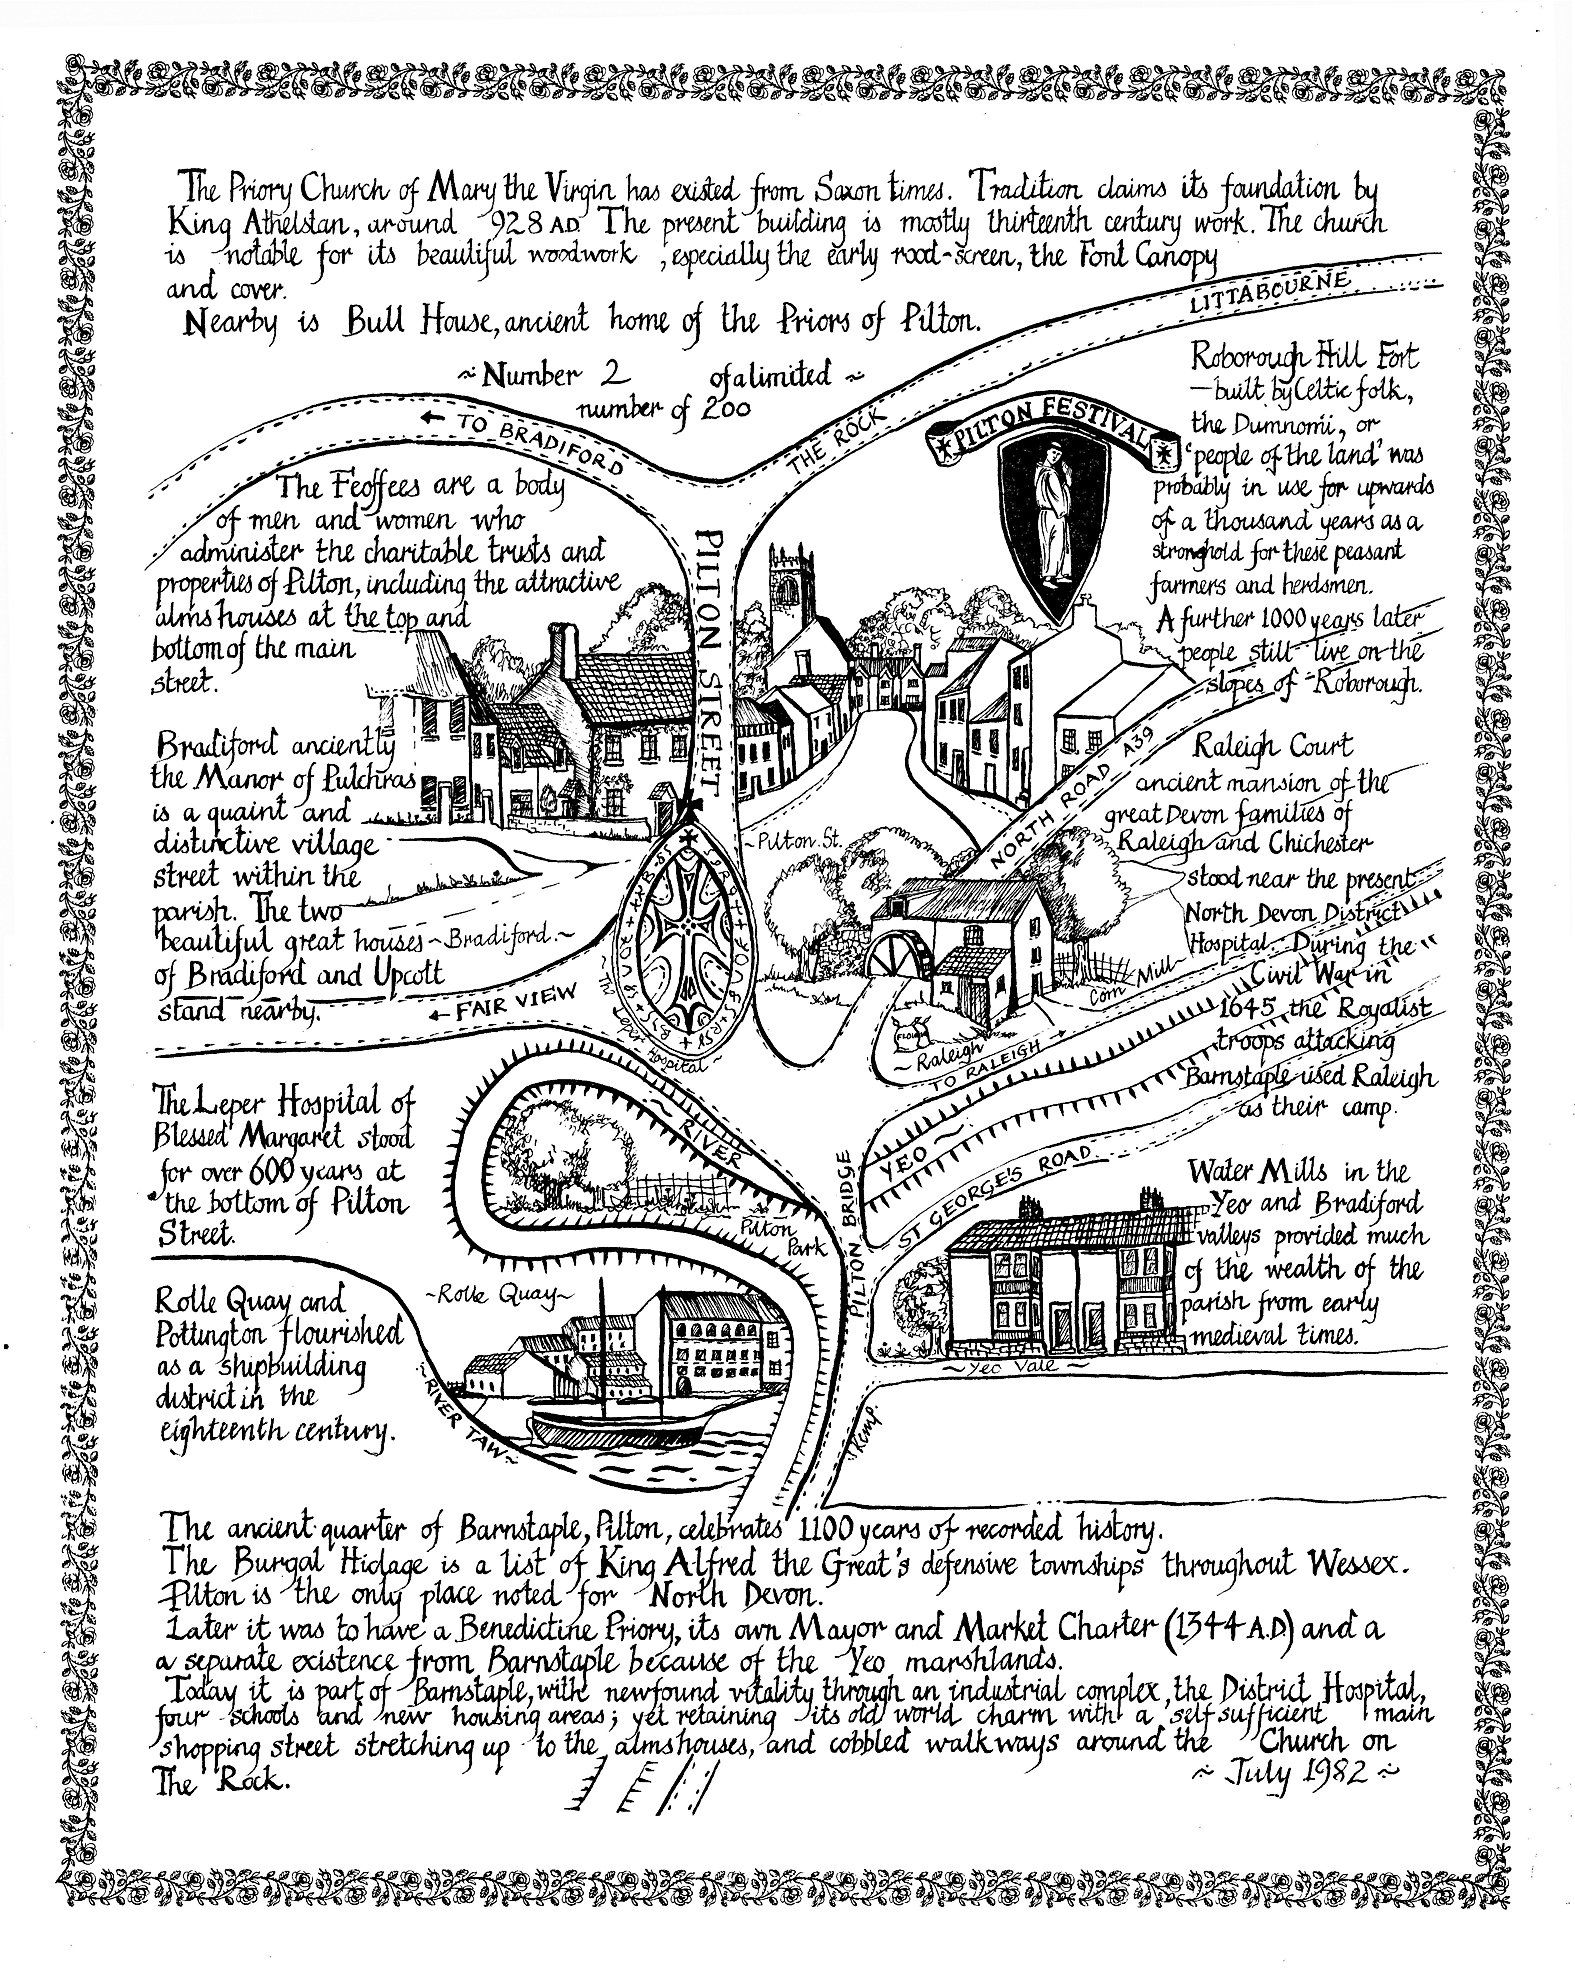 The Priory Church of Mary the Virgin has existed from Saxon times. Tradition claims its foundation by
King Athelstan, around 928 AD. The present building is mostly thirteenth century work. The church
is notable for its beautiful woodwork, especially the early rood-screen, the Font Canopy
and cover.
Nearby is Bull House, ancient home of the Priors of Pilton.
~ Number 2 of a limited ~
number of 200
LITTABOURNE
THE ROCK
← TO BRADIFORD
PILTON FESTIVAL
Roborough Hill Fort
— built by Celtic folk,
the Dumnomii, or
'people of the land' was
probably in use for upwards
of a thousand years as a
stronghold for these peasant
farmers and herdsmen.
A further 1000 years later
people still live on the
slopes of Roborough.
The Feoffees are a body
of men and women who
administer the charitable trusts and
properties of Pilton, including the attractive
alms houses at the top and
bottom of the main
street.
PILTON STREET
Bradiford anciently
the Manor of Pulchras
is a quaint and
distinctive village
street within the
parish. The two
beautiful great houses
of Bradiford and Upcott
stand nearby.
~Bradiford.~
← FAIR VIEW
~Pilton St.
NORTH ROAD A39
Raleigh Court
ancient mansion of the
great Devon families of
Raleigh and Chichester
stood near the present
North Devon District
Hospital. During the
Civil War in
1645 the Royalist
troops attacking
Barnstaple used Raleigh
as their camp.
Corn Mill~
FLOUR
~Raleigh
TO RALEIGH →
~The Leper Hospital~
The Leper Hospital of
Blessed Margaret stood
for over 600 years at
the bottom of Pilton
Street.
~ RIVER
YEO ~
PILTON BRIDGE
ST GEORGE'S ROAD
Pilton
Park
Water Mills in the
Yeo and Bradiford
valleys provided much
of the wealth of the
parish from early
medieval times.
~Yeo Vale~
Rolle Quay and
Pottington flourished
as a shipbuilding
district in the
eighteenth century.
~Rolle Quay~
~RIVER TAW~
JKemp.
The ancient quarter of Barnstaple, Pilton, celebrates 1100 years of recorded history.
The Burgal Hidage is a list of King Alfred the Great's defensive townships throughout Wessex.
Pilton is the only place noted for North Devon.
Later it was to have a Benedictine Priory, its own Mayor and Market Charter (1344 A.D) and a
a separate existence from Barnstaple because of the Yeo marshlands.
Today it is part of Barnstaple, with newfound vitality through an industrial complex, the District Hospital,
four schools and new housing areas; yet retaining its old world charm with a self sufficient main
shopping street stretching up to the almshouses, and cobbled walkways around the Church on
The Rock.
~ July 1982 ~